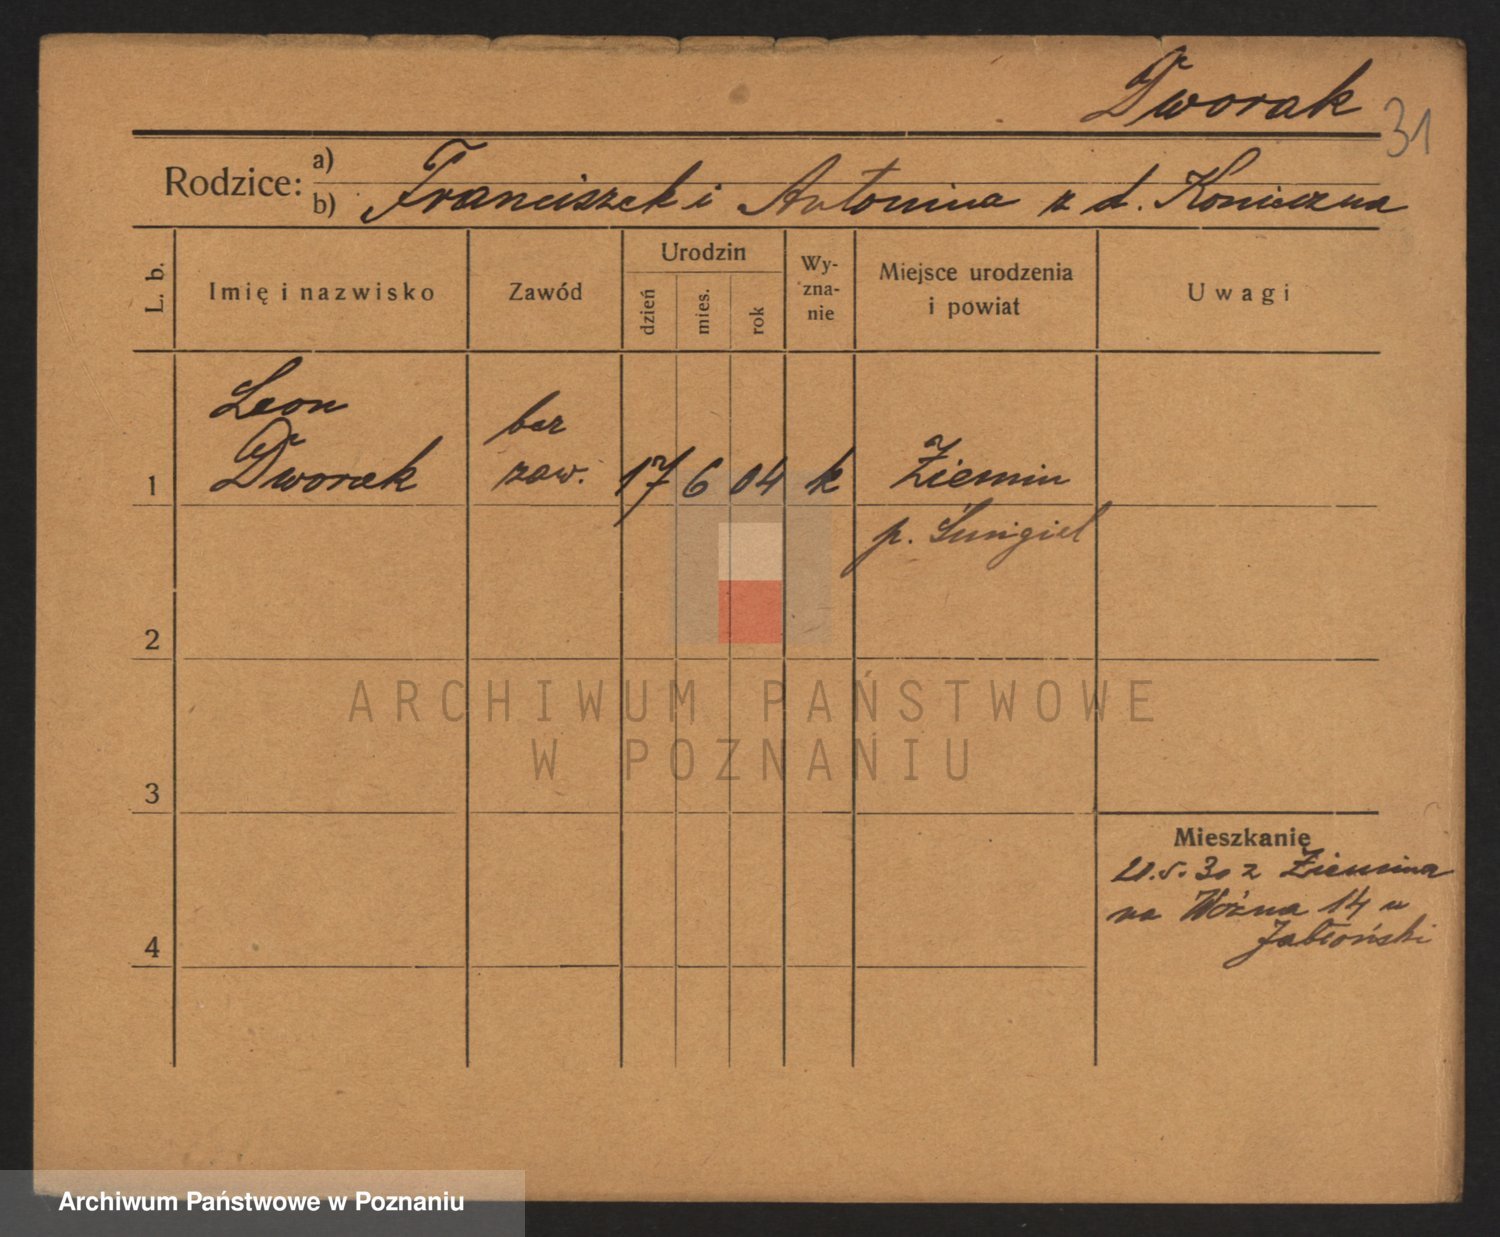 Dworak
31
Rodzice: a)
b) Franciszek i Antonina z d. Konieczna
L. b.
Imię i nazwisko
Zawód
Urodzin
dzień
mies.
rok
Wy-
zna-
nie
Miejsce urodzenia
i powiat
Uwagi
Leon
Dworak
bez
zaw.
1
17 6 04 k Ziemin
p. Śmigiel
2
ARCHIWUM PAŃSTWOWE
W POZNANIU
3
Mieszkanie
21.5.30 z Ziemina
na Woźna 14 u
Jabłoński
4
Archiwum Państwowe w Poznaniu